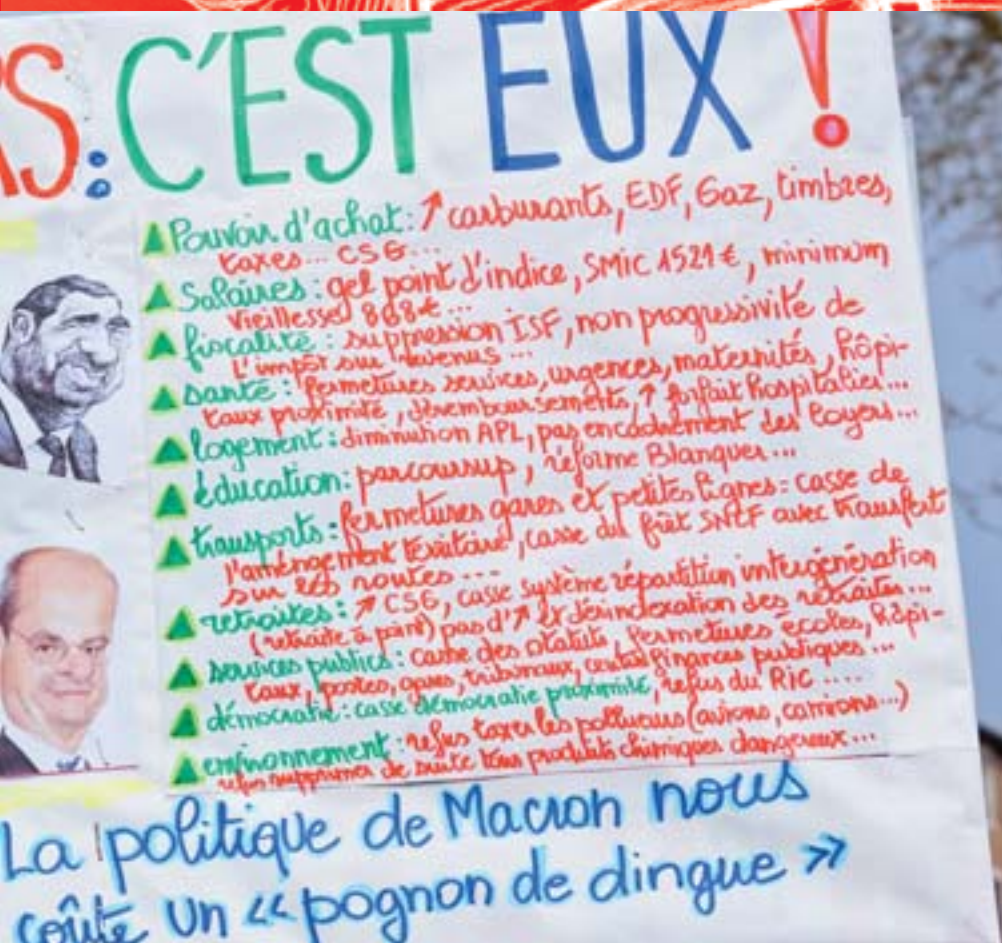 RS: C'EST EUX !
Pouvoir d'achat: ↗ carburants, EDF, Gaz, timbres,
taxes... CSG...
Salaires: gel point d'indice, SMIC 1521€, minimum
Vieillesse 868€...
fiscalité: suppression ISF, non progressivité de
l'impôt sur revenus...
santé: fermetures services, urgences, maternités, hôpi-
taux proximité, déremboursements, ↗ forfait hospitalier...
logement: diminution APL, pas encadrement des loyers...
éducation: parcoursup, réforme Blanquer...
transports: fermetures gares et petites lignes: casse de
l'aménagement territoire, casse du frêt SNCF avec transfert
sur les routes...
retraites: ↗ CSG, casse système répartition intergénération
(retraite à point) pas d'↗ et désindexation des retraites...
services publics: casse des statuts, fermetures écoles, hôpi-
taux, postes, gares, tribunaux, centres finances publiques...
démocratie: casse démocratie proximité, refus du RIC....
environnement: refus taxer les pollueurs (avions, camions...)
refus supprimer de suite tous produits chimiques dangereux...
La politique de Macron nous
coûte un «pognon de dingue»